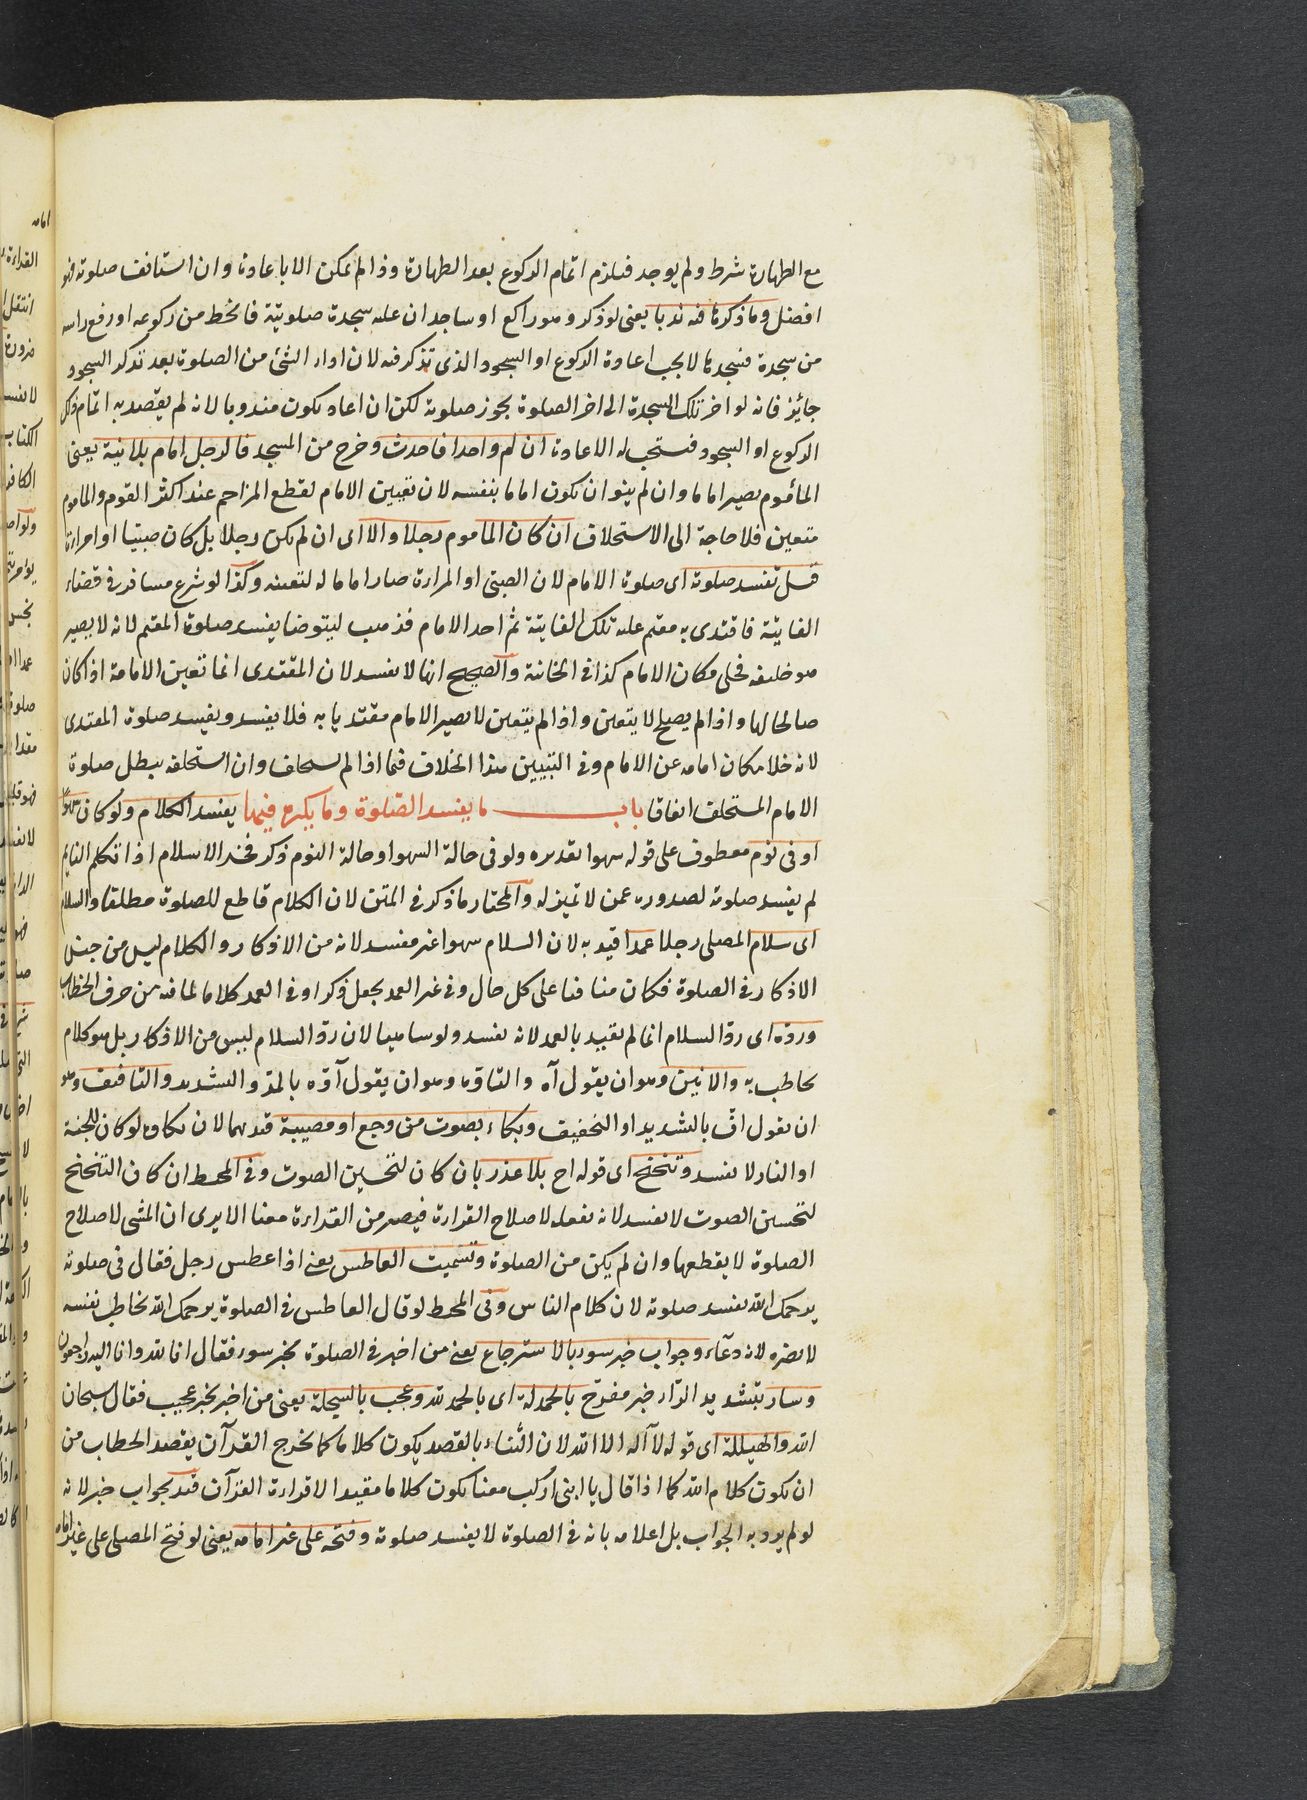 مع الطهارة شرط ولم يوجد فيلزم اتمام الركوع بعد الطهارة وذا لم يمكن الا باعادة وان استانف صلوته فهو
افضل وما ذكره فيه ندبا يعنى لو ذكر وهو راكع او ساجد ان عليه سجدة صلوتية فانحط من ركوعه او رفع راسه
من سجدة فسجدها لا يجب اعادة الركوع او السجود الذى تذكر فيه لان اداء الشئ من الصلوة بعد تذكر السجود
جائز فانه لو اخر تلك السجدة الى اخر الصلوة يجوز صلوته لكن ان اعاد يكون مندوبا لانه لم يقصد به اتمام ذلك
الركوع او السجود فيستحب له الاعادة ان لم واحدا فاحدث وخرج من المسجد فالرجل امام بلا نية يعنى
المأموم يصير اماما وان لم ينو ان يكون اماما بنفسه لان تعيين الامام لقطع المزاحم عند اكثر القوم والماموم
متعين فلا حاجة الى الاستخلاف ان كان الماموم رجلا والا اى ان لم يكن رجلا بل كان صبيا او امراة
قيل تفسد صلوته اى صلوة الامام لان الصبى او المراة صار اماما له لتعينه وكذا لو شرع مسافر فى قضاء
الفايتة فاقتدى به مقيم عليه تلك الفايتة ثم احد الامام فذهب ليتوضا يفسد صلوة المقيم لانه لا يصير
هو خليفه فخلى مكان الامام كذا فى الخانية والصحيح انها لا يفسد لان المقتدى انما تعين الامامة اذا كان
صالحا لها واذا لم يصلح لا يتعين واذا لم يتعين لا يصير الامام مقتديا به فلا يفسد ويفسد صلوة المقتدى
لانه خلا مكان امامه عن الامام وفى التبيين هذا الخلاف فيما اذا لم يستخلف وان استخلفه يبطل صلوة
الامام المستخلف اتفاقا باب ما يفسد الصلوة وما يكره فيها يفسد الكلام ولو كان سهوا
او فى نوم معطوف على قوله سهوا تقديره ولو فى حالة السهو او حالة النوم ذكر فخر الاسلام اذا تكلم النايم
لم يفسد صلوته لصدوره عمن لا تميز له والمختار ما ذكر فى المتن لان الكلام قاطع للصلوة مطلقا والسلام
اى سلام المصلى رجلا عمدا قيد به لان السلام سهوا غير مفسد لانه من الاذكار والكلام ليس من جنس
الاذكار فى الصلوة فكان منافيا على كل حال وفى غير العمد يجعل ذكرا وفى العمد كلاما لما فيه من حرف الخطاب
ورده اى رد السلام انما لم يقيد بالعمد لانه يفسد ولو ساهيا لان رد السلام ليس من الاذكار بل هو كلام
يخاطب به والانين وهو ان يقول آه والتاوه وهو ان يقول آوّه بالمد والتشديد والتافيف وهو
ان يقول افّ بالتشديد او التخفيف وبكاء بصوت من وجع او مصيبة قيد بهما لان بكاوه لو كان للجنة
او النار لا يفسد وتنحنح اى قوله اح بلا عذر بان كان لتحسين الصوت وفى المحيط ان كان التنحنح
لتحسين الصوت لا يفسد لانه يفعله لاصلاح القراءة فيصير من القراءة معنا الا يرى ان المشى لاصلاح
الصلوة لا يقطعها وان لم يكن من الصلوة وتشميت العاطس يعنى اذا عطس رجل فقال فى صلوته
يرحمك الله يفسد صلوته لان كلام الناس وفى المحيط لو قال العاطس فى الصلوة يرحمك الله يخاطب نفسه
لا يضره لانه دعاء وجواب خبر سوء بالاسترجاع يعنى من اخبر فى الصلوة بخبر سوء فقال انا لله وانا اليه راجعون
وسار بتشديد الراء خبر مفرّح بالحمدلة اى بالحمد لله وعجب بالسبحلة يعنى من اخبر بخبر عجيب فقال سبحان
الله والهيللة اى قوله لا اله الا الله لان الثناء بالقصد يكون كلاما كما يخرج القرآن بقصد الخطاب من
ان يكون كلام الله كما اذا قال يا ابنى اركب معنا يكون كلاما مفيدا لا قراءة القرآن قيد بجواب خبر لانه
لو لم يرد به الجواب بل اعلامه بانه فى الصلوة لا يفسد صلوته وفتحه على غير امامه يعنى لو فتح المصلى على غير امامه